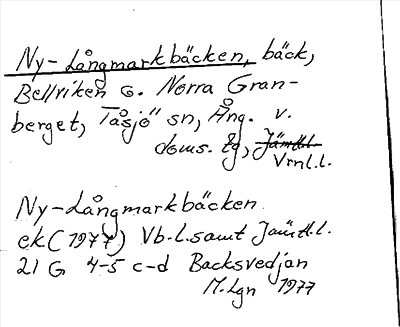 Ny-Långmarkbäcken, bäck,
Bellriken o. Norra Gran-
berget, Tåsjö sn, Ång. v.
doms. tg, Jämtl.l.
Vrnl.l.
Ny-Långmarkbäcken
ek (1977) Vb.l. samt Jämtl.l.
21 G 4-5 c-d Backsvedjan
M.Lgn 1977